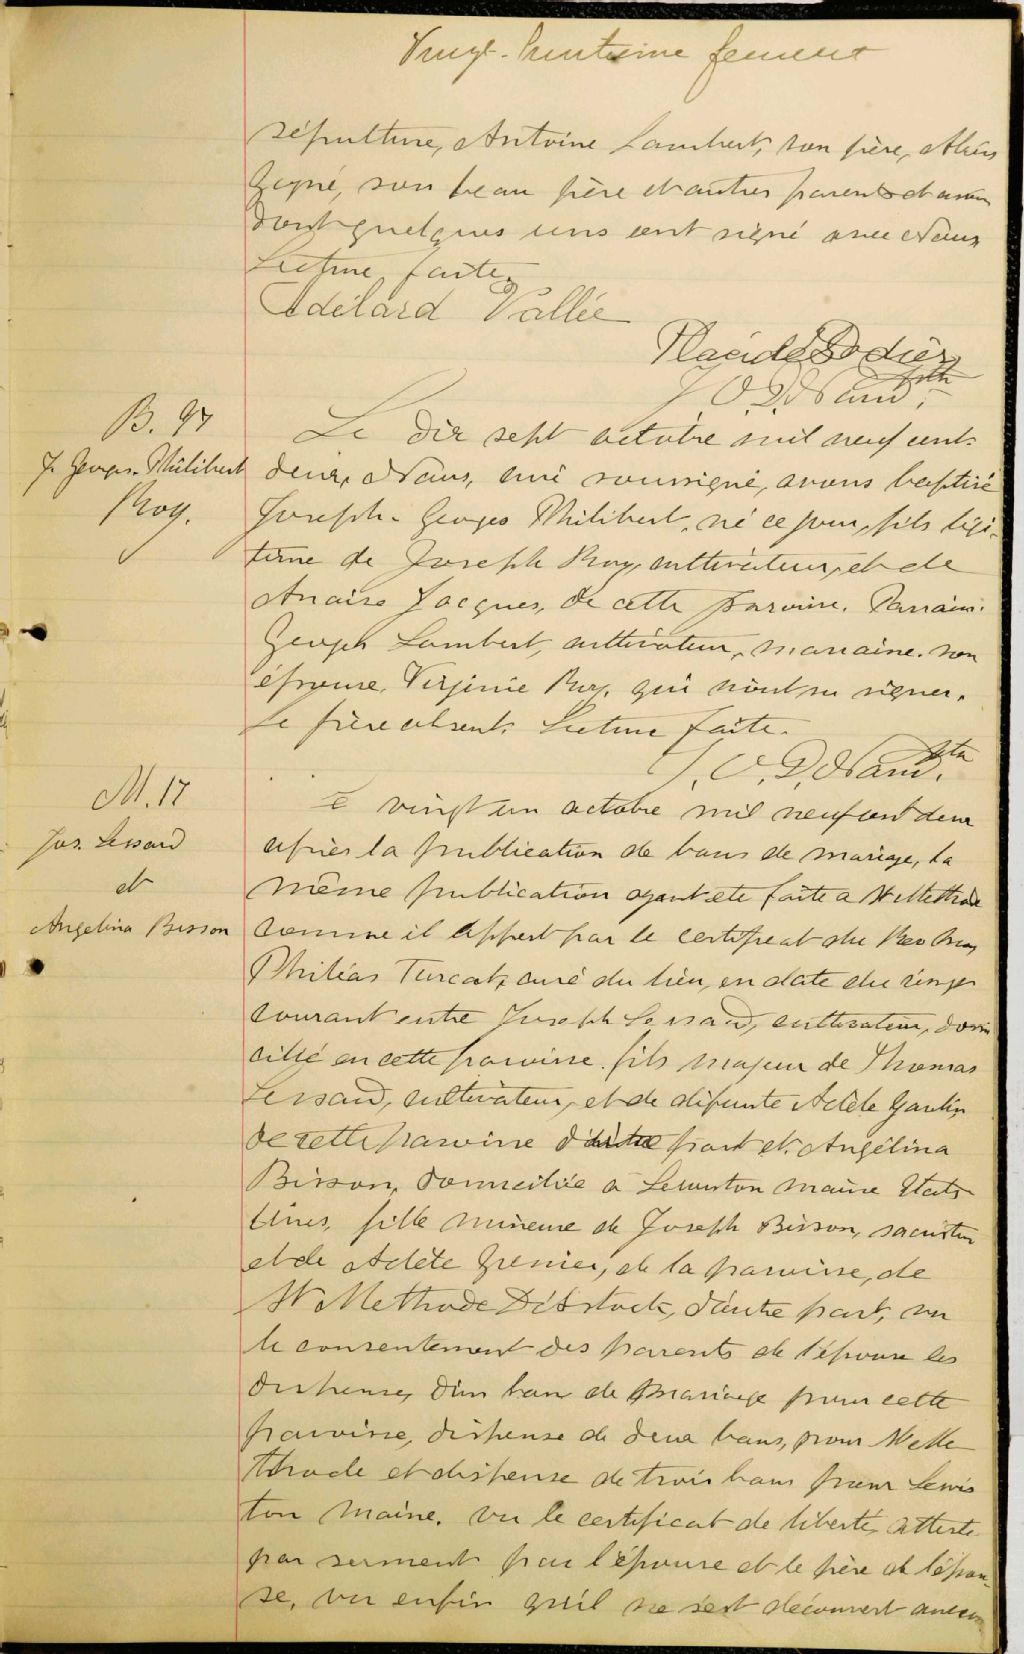 Vingt-huitième feuillet
sépulture, Antoine Lambert, son père,
Gagné, son beau père et autres parents et amis
dont quelques uns ont signé avec Nous
Lecture faite.
Adélard Vallée
Placide Dodier
J. O. D. Naud, ptre
B. 97
J. Georges-Philibert
Roy.
Le dix sept octobre mil neuf cent
deux, Nous, curé soussigné, avons baptisé
Joseph-Georges Philibert, né ce jour, fils légi-
time de Joseph Roy, cultivateur, et de
Anaïse Jacques, de cette paroisse. Parrain.
Joseph Lambert, cultivateur, marraine. son
épouse, Virginie Roy. qui n'ont su signer.
Le père absent. Lecture faite.
J. O. D. Naud, ptre
M. 17
Jos. Lessard
et
Angelina Bisson
Le vingt un octobre mil neuf cent deux
après la publication de bans de mariage, la
même publication ayant été faite a St Methode
comme il appert par le certificat du Rev
Philéas Turcot, curé du lieu, en date du vingt
courant entre Joseph Lessard, cultivateur, domi
cilié en cette paroisse. fils majeur de Thomas
Lessard, cultivateur, et de défunte Adèle Gaulin,
de cette paroisse d'une part et Angélina
Bisson, domiciliée à Lewiston Maine Etats
Unis, fille mineure de Joseph Bisson, sacristin
et de Adèle Grenier, de la paroisse, de
St Methode D'Adstock, d'autre part, vu
le consentement des parents de l'épouse les
dispenses, d'un ban de mariage pour cette
paroisse, dispense de deux bans, pour St Me
thode et dispense de trois bans pour Lewis
ton Maine. vu le certificat de liberté attesté
par serment par l'épouse et le père de l'épou-
se, vu enfin qu'il ne s'est découvert aucun